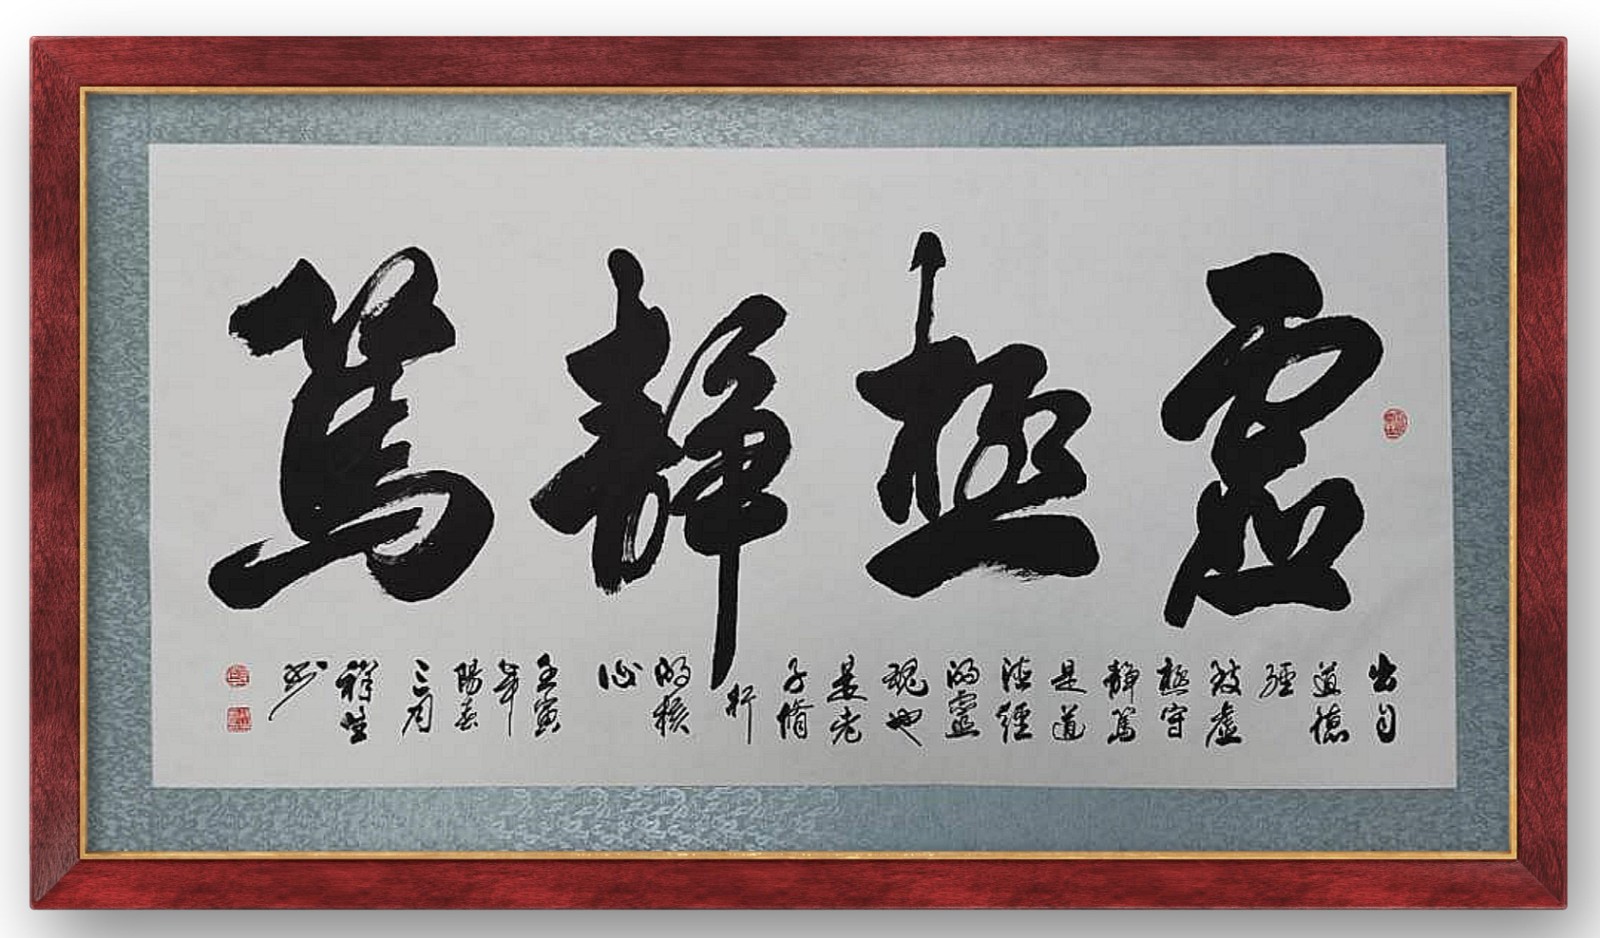 虛極靜篤
出自
道德
經
致虛
極守
靜篤
是道
德經
的靈
魂也
是老
子脩
行
的核
心
壬寅
年
陽春
三月
祥生
书